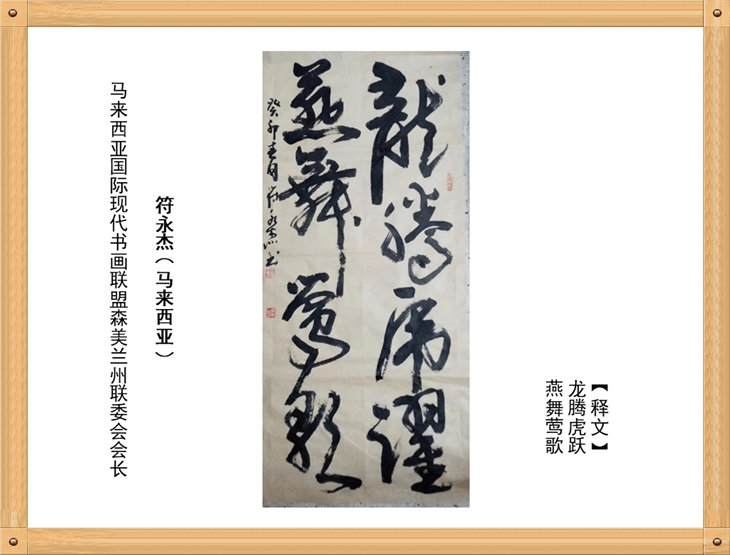 【释文】
龙腾虎跃
燕舞莺歌
龍騰虎躍
燕舞鶯歌
癸卯春月符永杰书
符永杰（马来西亚）
马来西亚国际现代书画联盟森美兰州联委会会长